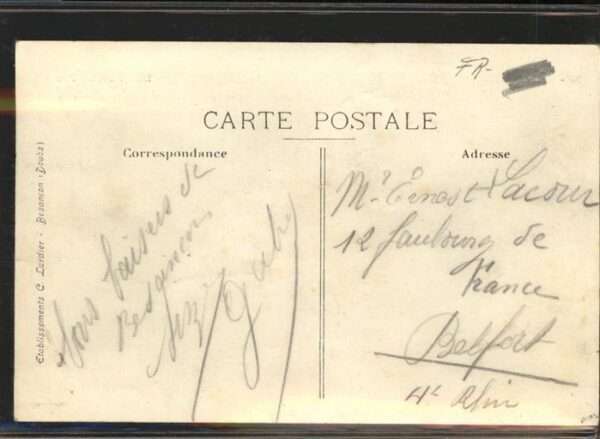 FR-
CARTE POSTALE
Correspondance
Adresse
Etablissements C. Lardier - Besançon (Doubs)
Bons baisers de
Besançon
Gaby
Mr Ernest Lacour
12 faubourg de
France
Belfort
Ht Rhin